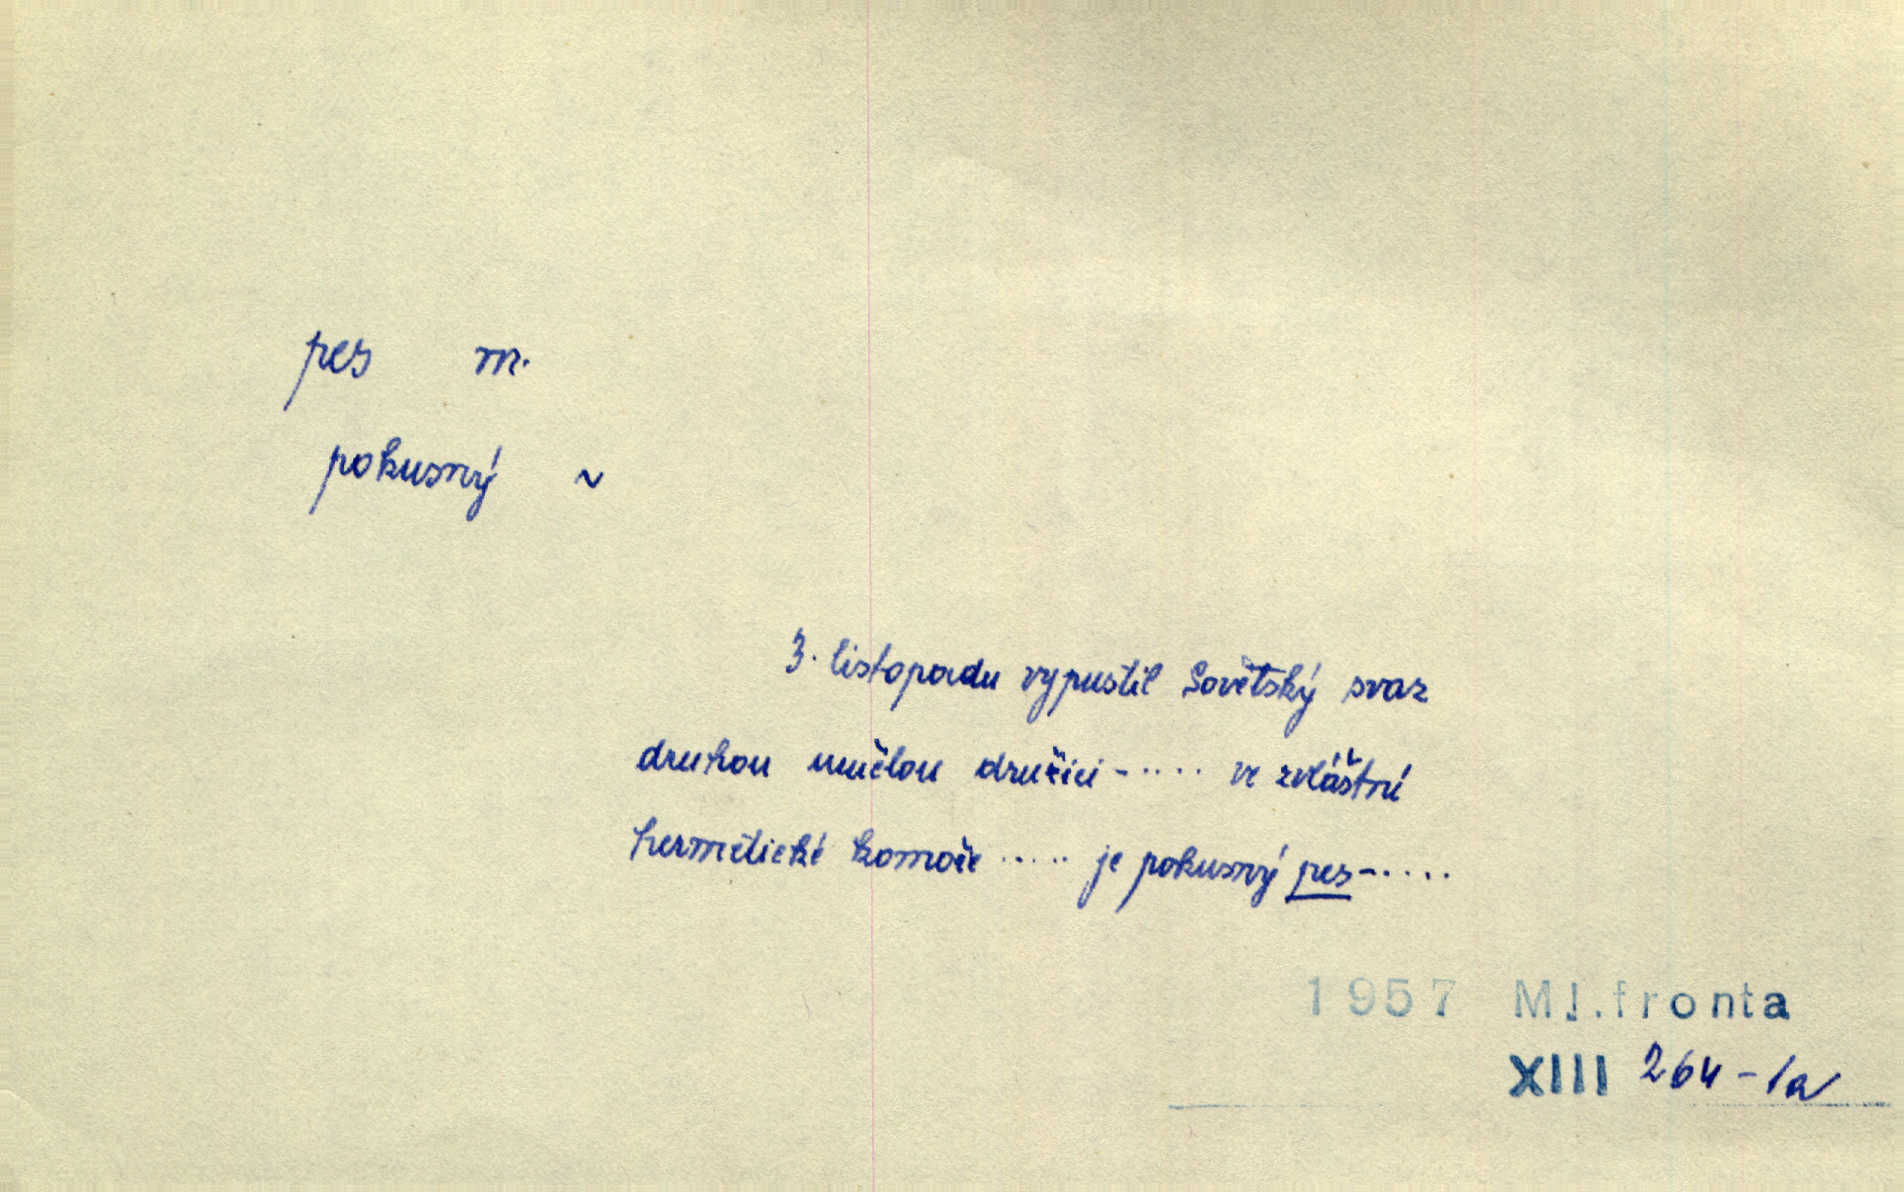 pes m.
pokusný ~
3. listopadu vypustil Sovětský svaz
druhou umělou družici - ..... ve zvláštní
hermetické komoře ..... je pokusný pes - .....
1957 Ml.fronta
XIII 264-1a